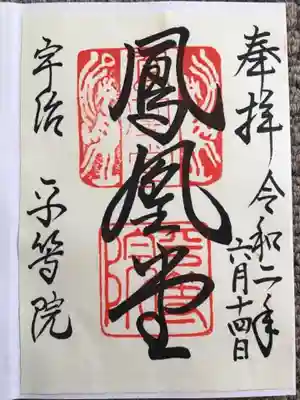 奉拝 令和二年
六月十四日
鳳凰堂
宇治 平等院